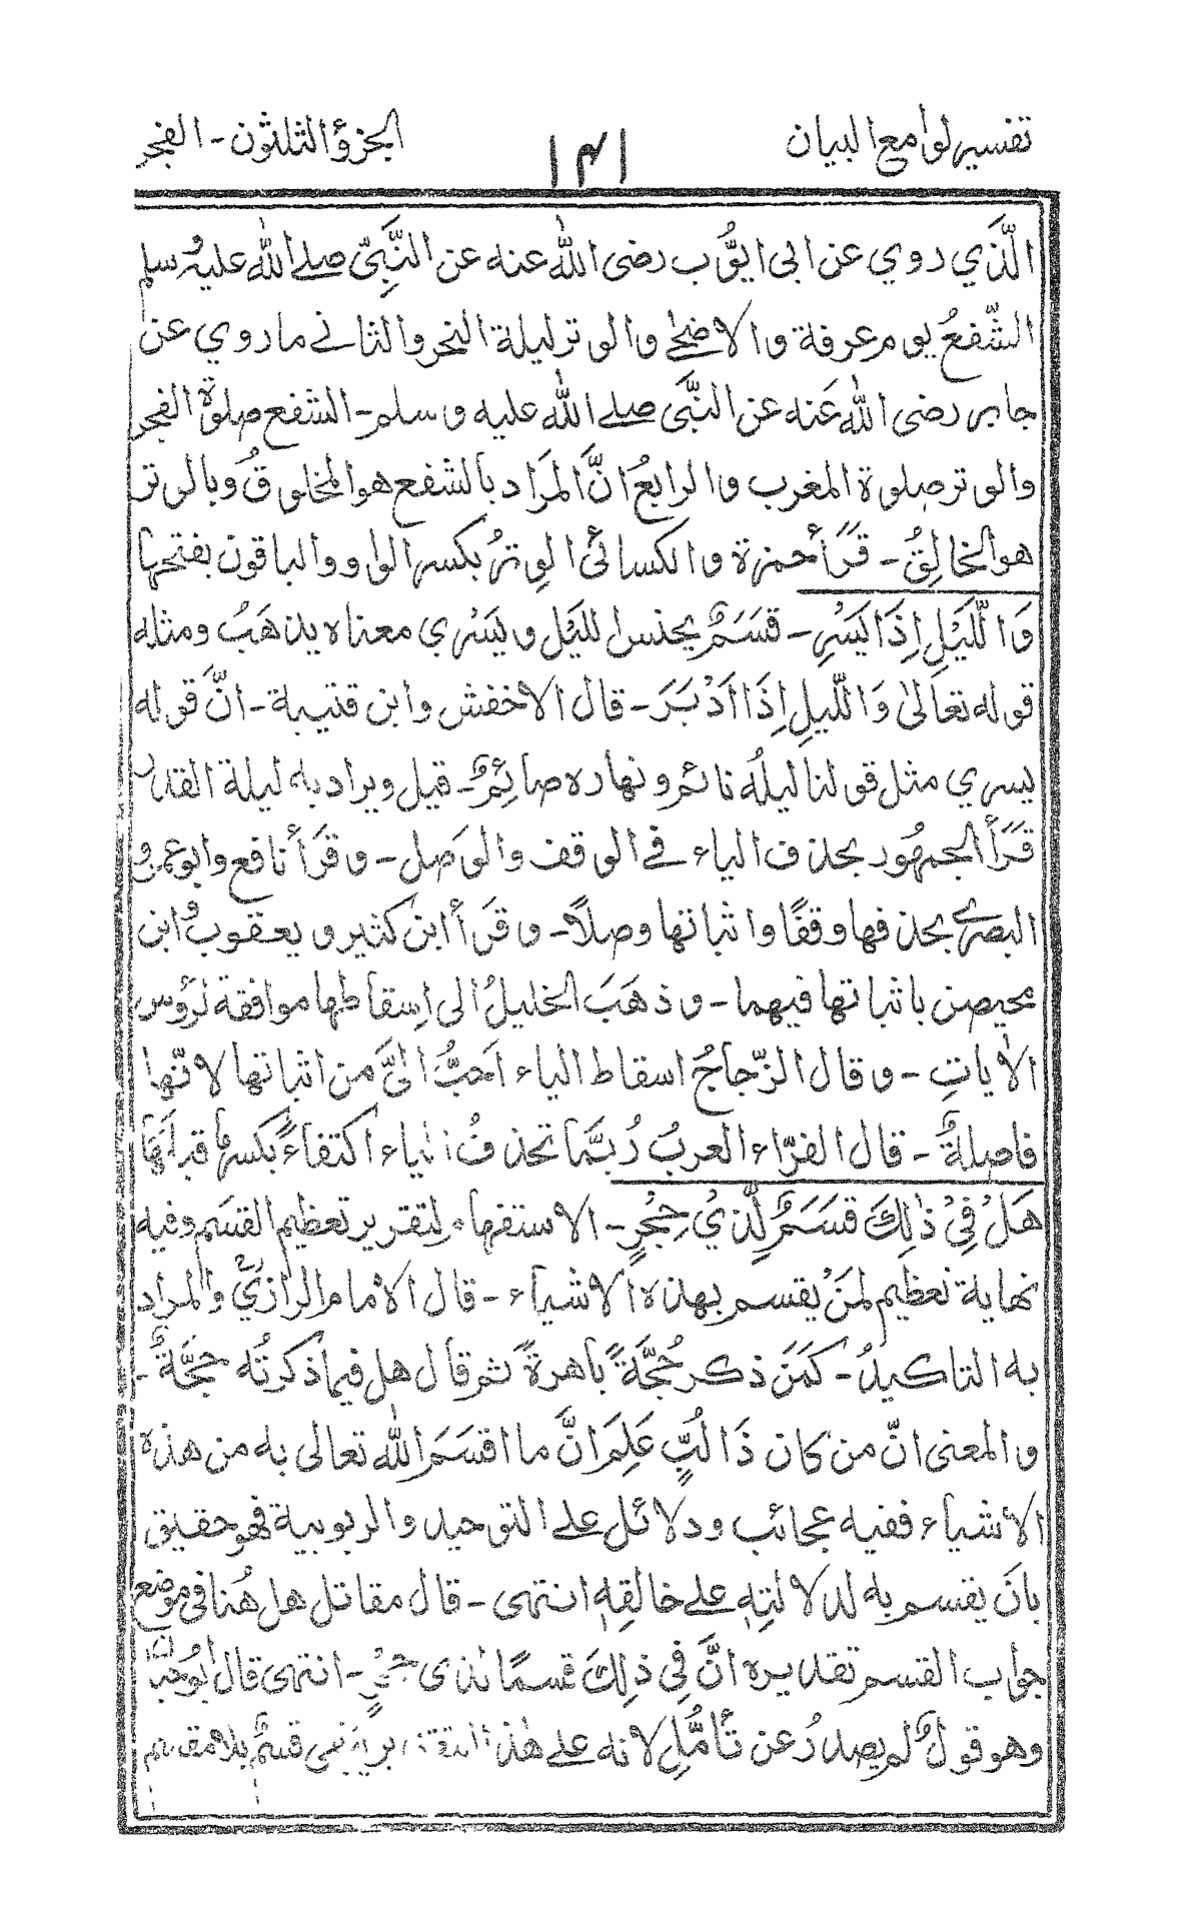 تفسير لوامع البيان ۱۴۱ الجزؤ الثلثون - الفجر
الَّذَي روي عن ابی ایوُّب رضی الله عنه عن النَّبِیّ صلے الله علیه وسلم
الشّفعُ يوم عرفة والاضحٰے والوتر ليلة النحر والثانے ما روي عن
جابر رضی الله عَنه عن النبَّی صلے الله عليه وسلم - الشفع صلوة الفجر
والوتر صلوة المغرب والرابعُ انَّ المرَاد بالشفع هوالمخلوقُ وبالوتر
هوالخالِقُ - قَرَأ حمزة والكسائي الوِترُ بكسر الواو والباقون بفتحها
وَالَّيَلِ اِذَا يَسْرِ - قسَمٌ بجنس الليَل ويَسْري معناه يذهَبُ ومثله
قوله تعَالىٰ وَاللَّيلِ اِذَا اَدْبَرَ - قال الاخفش وابن قتيبة - انَّ قوله
يسري مثل قولنا ليلُه نائم ونهاره صائِمٌ - قيل ويراد به ليلة القدر
قَرَأَ الجمهُور بحذف الياء في الوقف والوَصل - وقرَأ نافع وابو عمرو
البصرے بحذفها وقفًا واثباتها وصلاً - وقَرأ ابن كثير ويعقوبُ وابن
محيصن باثباتها فيهما - وذهَبَ الخليلُ الى اِسقاطها موافقة لرؤس
الاٰياتِ - وقال الزّجاجُ اسقاط الياء احَبُّ الیَّ من اثباتها لانّها
فاصلةٌ - قال الفرّاء العربُ رُبَّما تحذفُ الياء اكتفاءً بكسرها قبلَهَا
هَلْ فِيْ ذٰلِكَ قسَمٌ لِّذِيْ حِجْرٍ - الاستفهام لِتقرير تعظيم القسَم وفيه
نهاية تعظيم لمنَ يقسم بهذه الاشياء - قال الامام الرازيُّ والمراد
به التاكيدُ - كمَنَ ذكر حُجَّةً باهرةً ثم قال هل فيما ذكرتُه حجَّةٌ -
والمعنى انّ من كان ذَا لُبٍّ عَلِمَ انَّ ما اقسَمَ الله تعالى به من هذه
الاشياء ففيه عجائب ودلائل علے التوحيد والربوبية فهو حقيق
بانَ يقسم به لدلالتِهٖ علے خالقِهٖ انتهى - قال مقاتل هل هُنا في موضع
جواب القسم تقديره انَّ فِي ذٰلِكَ قسمًا لذی حِجْرٍ - انتهى قال ابُو حيّان
وهو قولٌ لم يصدرُ عن تَأمُّلِ لانه علے هٰذا التقدير يبقى قسَمٌ بلا مقسم